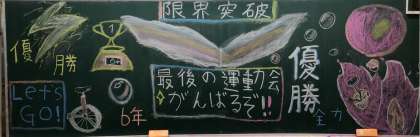 限界突破
優勝
1
最後の運動会
がんばるぞ!!
優勝
Let's
GO!
6年
全力